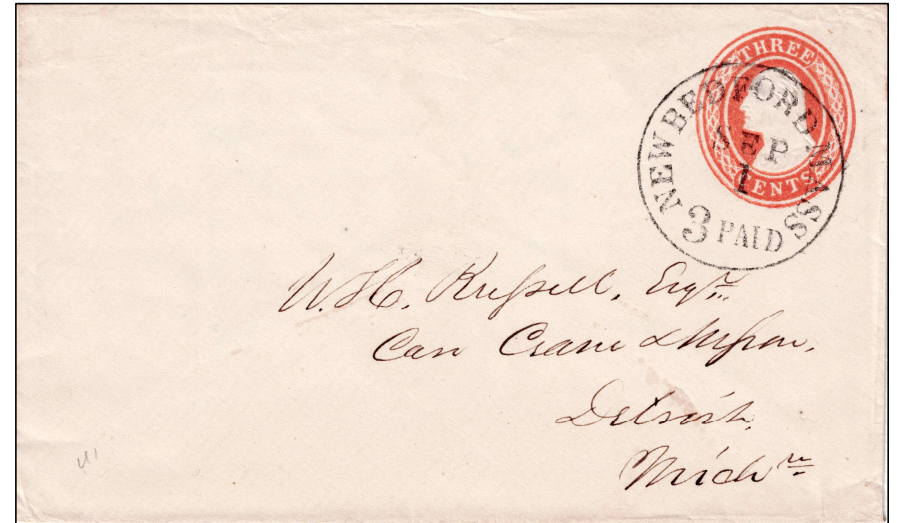 THREE
CENTS
NEW BEDFORD MASS
SEP
1
3 PAID
W. H. Russell, Esqr.
Care Crane & Wesson,
Detroit,
Michn
U1